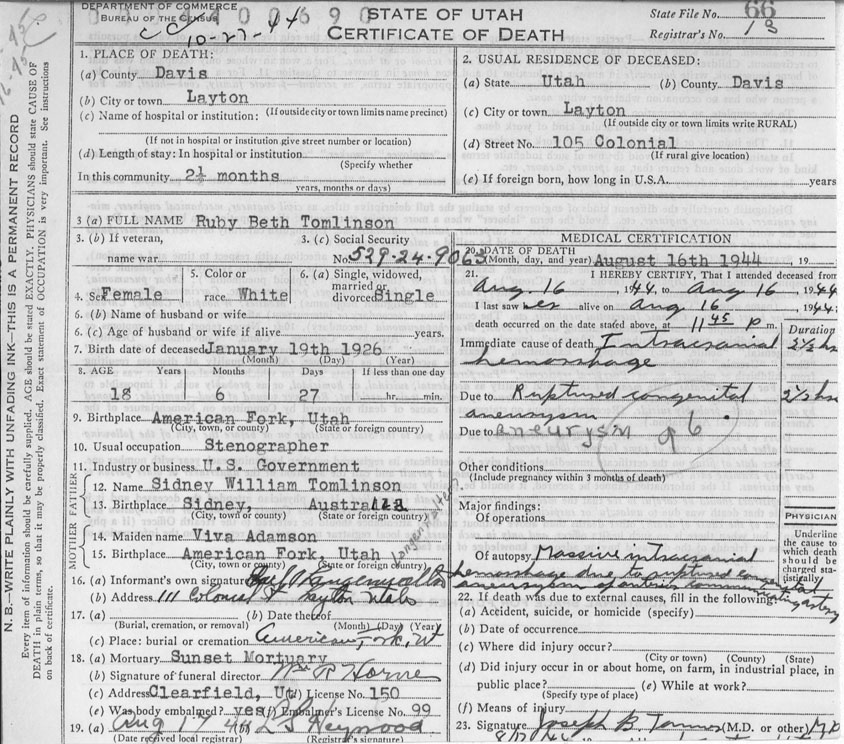 DEPARTMENT OF COMMERCE
BUREAU OF THE CENSUS
10-27-44
STATE OF UTAH
CERTIFICATE OF DEATH
State File No. 66
Registrar's No. 18
N. B.—WRITE PLAINLY WITH UNFADING INK—THIS IS A PERMANENT RECORD
Every item of information should be carefully supplied. AGE should be stated EXACTLY. PHYSICIANS should state CAUSE OF
DEATH in plain terms, so that it may be properly classified. Exact statement of OCCUPATION is very important. See instructions
on back of certificate.
1. PLACE OF DEATH:
(a) County Davis
(b) City or town Layton
(If outside city or town limits name precinct)
(c) Name of hospital or institution:
(If not in hospital or institution give street number or location)
(d) Length of stay: In hospital or institution
(Specify whether
In this community 2½ months
years, months or days)
2. USUAL RESIDENCE OF DECEASED:
(a) State Utah (b) County Davis
(c) City or town Layton
(If outside city or town limits write RURAL)
(d) Street No. 105 Colonial
(If rural give location)
(e) If foreign born, how long in U.S.A. years
3 (a) FULL NAME Ruby Beth Tomlinson
3. (b) If veteran, name war
3. (c) Social Security No. 529-24-9063
4. Sex Female
5. Color or race White
6. (a) Single, widowed, married or divorced Single
6. (b) Name of husband or wife
6. (c) Age of husband or wife if alive years.
7. Birth date of deceased January 19th 1926
(Month) (Day) (Year)
8. AGE Years Months Days If less than one day
18 6 27 hr. min.
9. Birthplace American Fork, Utah
(City, town or county) (State or foreign country)
10. Usual occupation Stenographer
11. Industry or business U.S. Government
FATHER
12. Name Sidney William Tomlinson
13. Birthplace Sidney, Australia
(City, town or county) (State or foreign country)
MOTHER
14. Maiden name Viva Adamson
15. Birthplace American Fork, Utah
(City, town or county) (State or foreign country)
16. (a) Informant's own signature
(b) Address 111 Colonial Layton Utah
17. (a) (b) Date thereof
(Burial, cremation, or removal) (Month) (Day) (Year)
(c) Place: burial or cremation American Fork, Ut
18. (a) Mortuary Sunset Mortuary
(b) Signature of funeral director Horne
(c) Address Clearfield, Ut (d) License No. 150
(e) Was body embalmed? yes (f) Embalmer's License No. 99
19. (a) Aug 17 44 (b) L S Heywood
(Date received local registrar) (Registrar's signature)
MEDICAL CERTIFICATION
20. DATE OF DEATH
(Month, day, and year) August 16th 1944, 19
21. I HEREBY CERTIFY, That I attended deceased from
Aug. 16 1944, to Aug 16, 1944
I last saw her alive on Aug 16 1944;
death occurred on the date stated above, at 11 45 p m.
Duration
Immediate cause of death Intracranial 2½ hr
hemorrhage
Due to Ruptured congenital 2½ hr
aneurysm
Due to aneurysm 6
Other conditions
(Include pregnancy within 3 months of death)
Major findings:
Of operations
PHYSICIAN
Underline
the cause to
which death
should be
charged sta-
tistically
Of autopsy Massive intracranial
hemorrhage due to ruptured congenital
aneurysm of anterior communicating artery
22. If death was due to external causes, fill in the following:
(a) Accident, suicide, or homicide (specify)
(b) Date of occurrence
(c) Where did injury occur?
(City or town) (County) (State)
(d) Did injury occur in or about home, on farm, in industrial place, in
public place? (e) While at work?
(Specify type of place)
(f) Means of injury
23. Signature Joseph B. (M.D. or other) MD